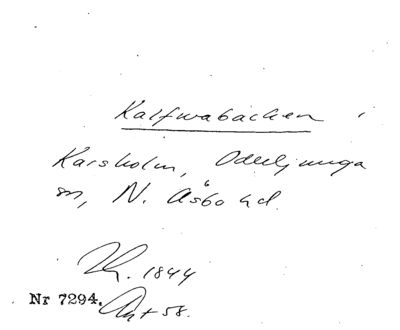 Kalfwabacken i
Karsholm, Oderljunga
sn, N. Åsbo hd.
1844
Nr 7294. Akt 58.